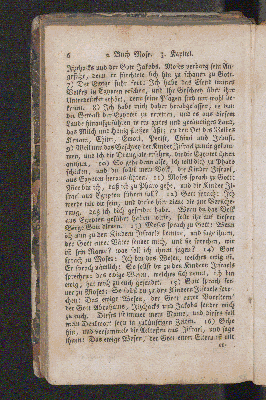 6 2 Buch Mose. 3. Kapitel.
Jizchacks und der Gott Jakobs. Moses verbarg sein An-
gesicht, denn er fürchtete sich hin zu schauen zu Gott.
7) Der Ewige sprach: Ich habe das Elend meines
Volkes in Egypten gesehen, und ihr Geschrey über ihre
Unterdrücker gehört, denn seine Plagen sind mir wohl be-
kannt. 8) Ich habe mich daher herabgelassen, es von
der Gewalt der Egypter zu erretten, und es aus diesem
Lande hinaufzuführen in ein gutes und geräumiges Land,
das Milch und Honig fließt
Kenaani, Chitti, Emori, Perisi, Chiwi und Jebusi.
9) Weil nun das Geschrey der Kinder Jisrael zu mir gekom-
men, und ich die Drangsale erfahren, die die Egypter ihnen
anthun, 10) So gehe dann also, ich will dich zu Pharo
schicken, und du sollst mein Volk, die Kinder Jisrael,
aus Egypten herausführen. 11) Moses sprach zu Gott:
Wer bin ich, daß ich zu Pharo gehe, und die Kinder Jis-
rael aus Egypten führen soll? 12) Gott sprach: Ich
werde mit dir seyn, und dieses
daß ich dich gesandt habe. Wenn du das Volk
aus Egypten geführt haben wirst, sollt ihr auf diesem
Berge Gott dienen. 13) Moses sprach zu Gott: Wenn
ich nun zu den Kindern Jisraels komme, und sage ihnen,
der Gott eurer Väter sendet mich, und sie sprechen, wie
ist sein Name? was soll ich ihnen sagen? 14) Gott
sprach zu Mose: Ich bin das Wesen, welches ewig ist.
Er sprach nämlich: So sollst du zu den Kindern Jisraels
sprechen: das ewige Wesen, welches sich nennt, ich bin
ewig, hat mich zu euch gesendet. 15) Gott sprach fer-
ner zu Moses: So sollst du zu den Kindern Jisraels spre-
chen: Das ewige Wesen, der Gott eurer Voreltern,
der Gott Abrahams, Jizchacks und Jakobs sendet mich
zu euch. Dieses ist immer mein Name, und dieses soll
mein Denkwort seyn in zukünftigen Zeiten. 16) Gehe
hin, und versammele die Aeltesten aus Jisrael, und sage
ihnen: Das ewige Wesen, der Gott eurer Eltern ist mir